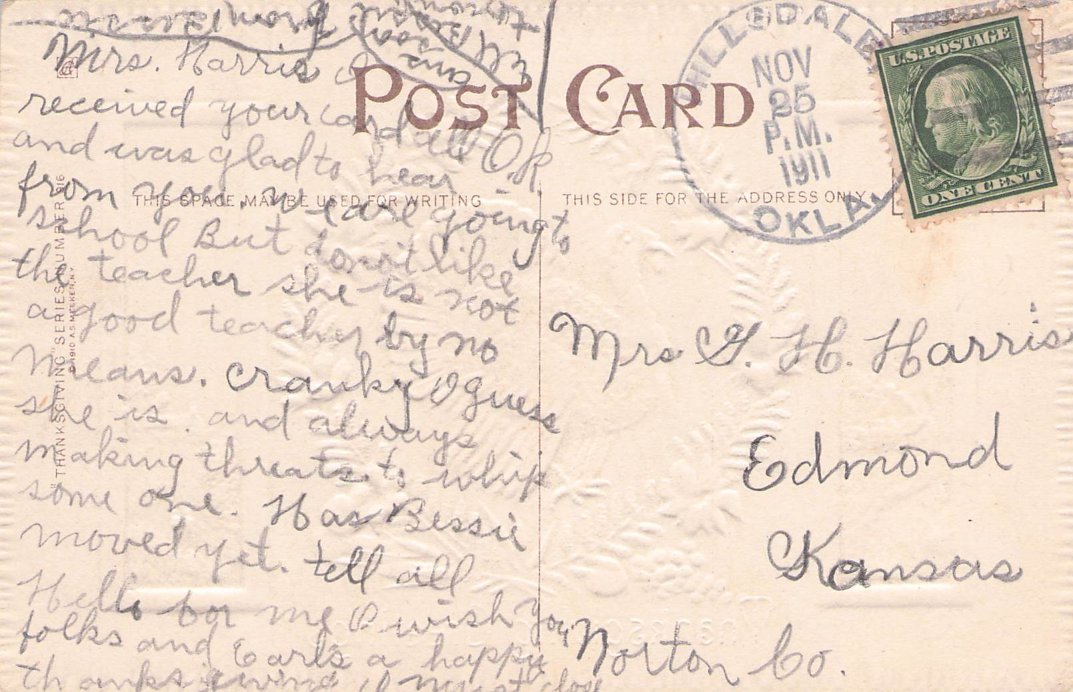 Mrs. Harris I
received your card all OK
and was glad to hear
from you we are going to
school But don't like
the teacher she is not
a good teacher by no
means. Cranky I guess
she is. and always
making threats to whip
some one. Has Bessie
moved yet. tell all
Hello for me I wish you
folks and Earls a happy
thanksgiving I must close
from
ans soon
tell Bessie
POST CARD
THIS SPACE MAY BE USED FOR WRITING
THIS SIDE FOR THE ADDRESS ONLY
"THANKSGIVING" SERIES NUMBER 916
HILLSDALE
NOV
25
P.M.
1911
OKLA.
U.S. POSTAGE
ONE CENT
Mrs G. H. Harris
Edmond
Kansas
Norton Co.